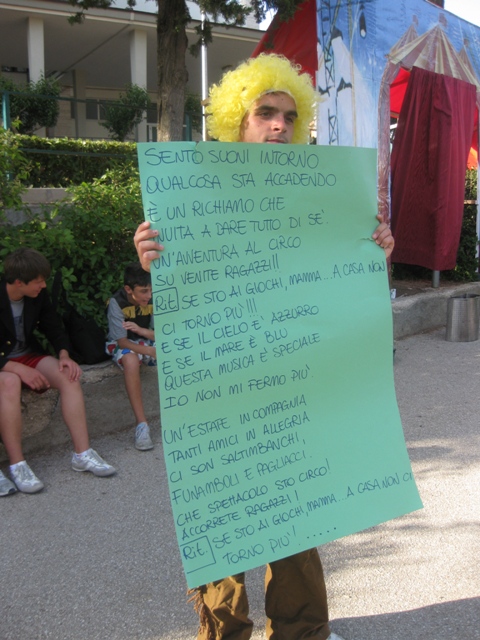 SENTO SUONI INTORNO
QUALCOSA STA ACCADENDO
È UN RICHIAMO CHE
INVITA A DARE TUTTO DI SE'.
UN'AVVENTURA AL CIRCO
SU VENITE RAGAZZI!!
Rit. SE STO AI GIOCHI, MAMMA... A CASA NON
CI TORNO PIU'!!!
E SE IL CIELO E' AZZURRO
E SE IL MARE È BLU
QUESTA MUSICA E' SPECIALE
IO NON MI FERMO PIU'.
UN'ESTATE IN COMPAGNIA
TANTI AMICI IN ALLEGRIA
CI SON SALTIMBANCHI,
FUNAMBOLI E PAGLIACCI.
CHE SPETTACOLO STO CIRCO!
ACCORRETE RAGAZZI!
Rit. SE STO AI GIOCHI, MAMMA... A CASA NON CI
TORNO PIU'! ......